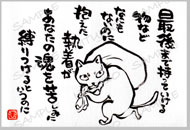 最後まで持っていける
物など
なにも
ないのに
抱えた
執着が
あなたの魂を苦しめ
縛りつけるというのに